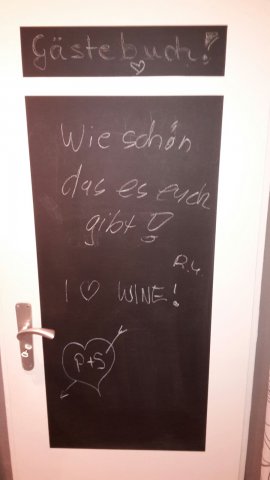 Gästebuch!
Wie schön
das es euch
gibt!
R.U.
I ♡ WINE!
P+S